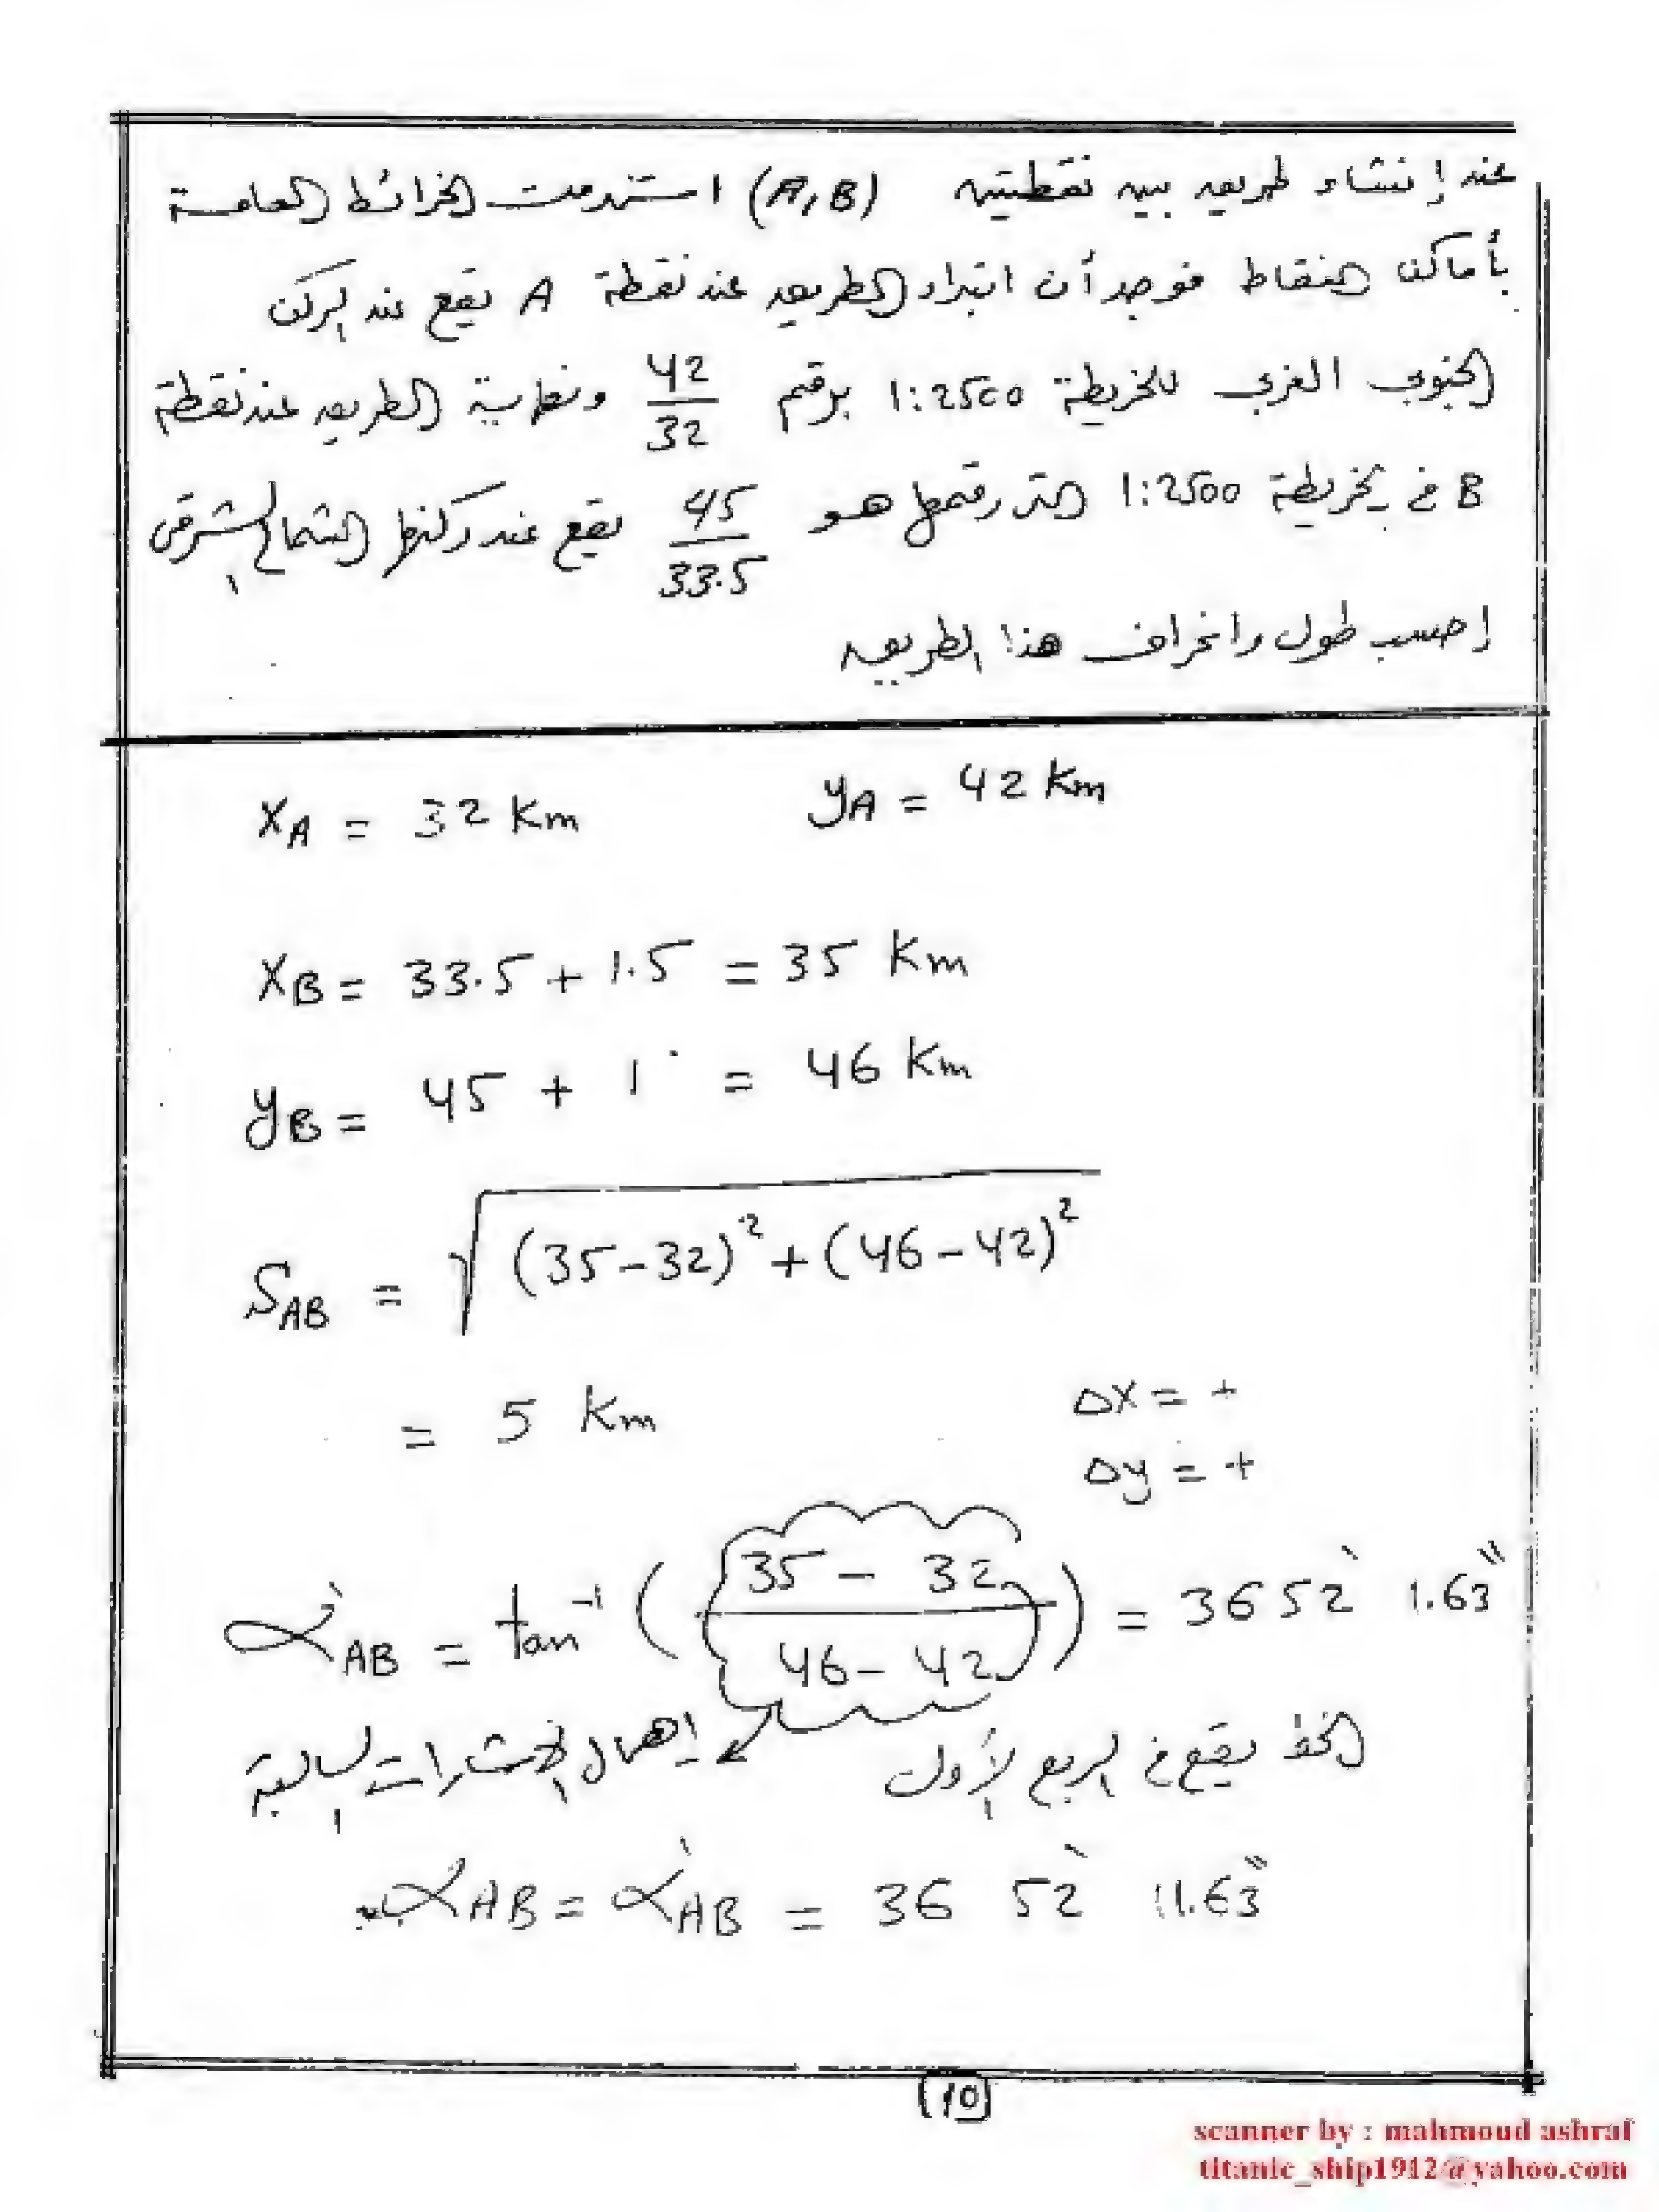 عند إنشاء طريق بين نقطتين (A,B) استخدمت الخرائط الخاصة
بأماكن النقاط فوجد أن ابتداء الطريق عند نقطة A يقع عند الركن
الجنوبي الغربي للخريطة 1:2500 برقم 42/32 ونهاية الطريق عند نقطة
B في خريطة 1:2500 التي رقمها هو 45/33.5 يقع عند ركنها الشمالي الشرقي
إحسب طول وانحراف هذا الطريق
XA = 32 Km yA = 42 Km
XB = 33.5 + 1.5 = 35 Km
yB = 45 + 1 = 46 Km
SAB = √(35-32)² + (46-42)²
= 5 Km
ΔX = +
Δy = +
α'AB = tan⁻¹ ( 35 - 32 / 46 - 42 ) = 36 52' 1.63"
الخط يقع في الربع الأول
إهمال الإشارات السالبة
αAB = α'AB = 36 52' 11.63"
(10)
scanner by : mahmoud ashraf
titanic_ship1912@yahoo.com